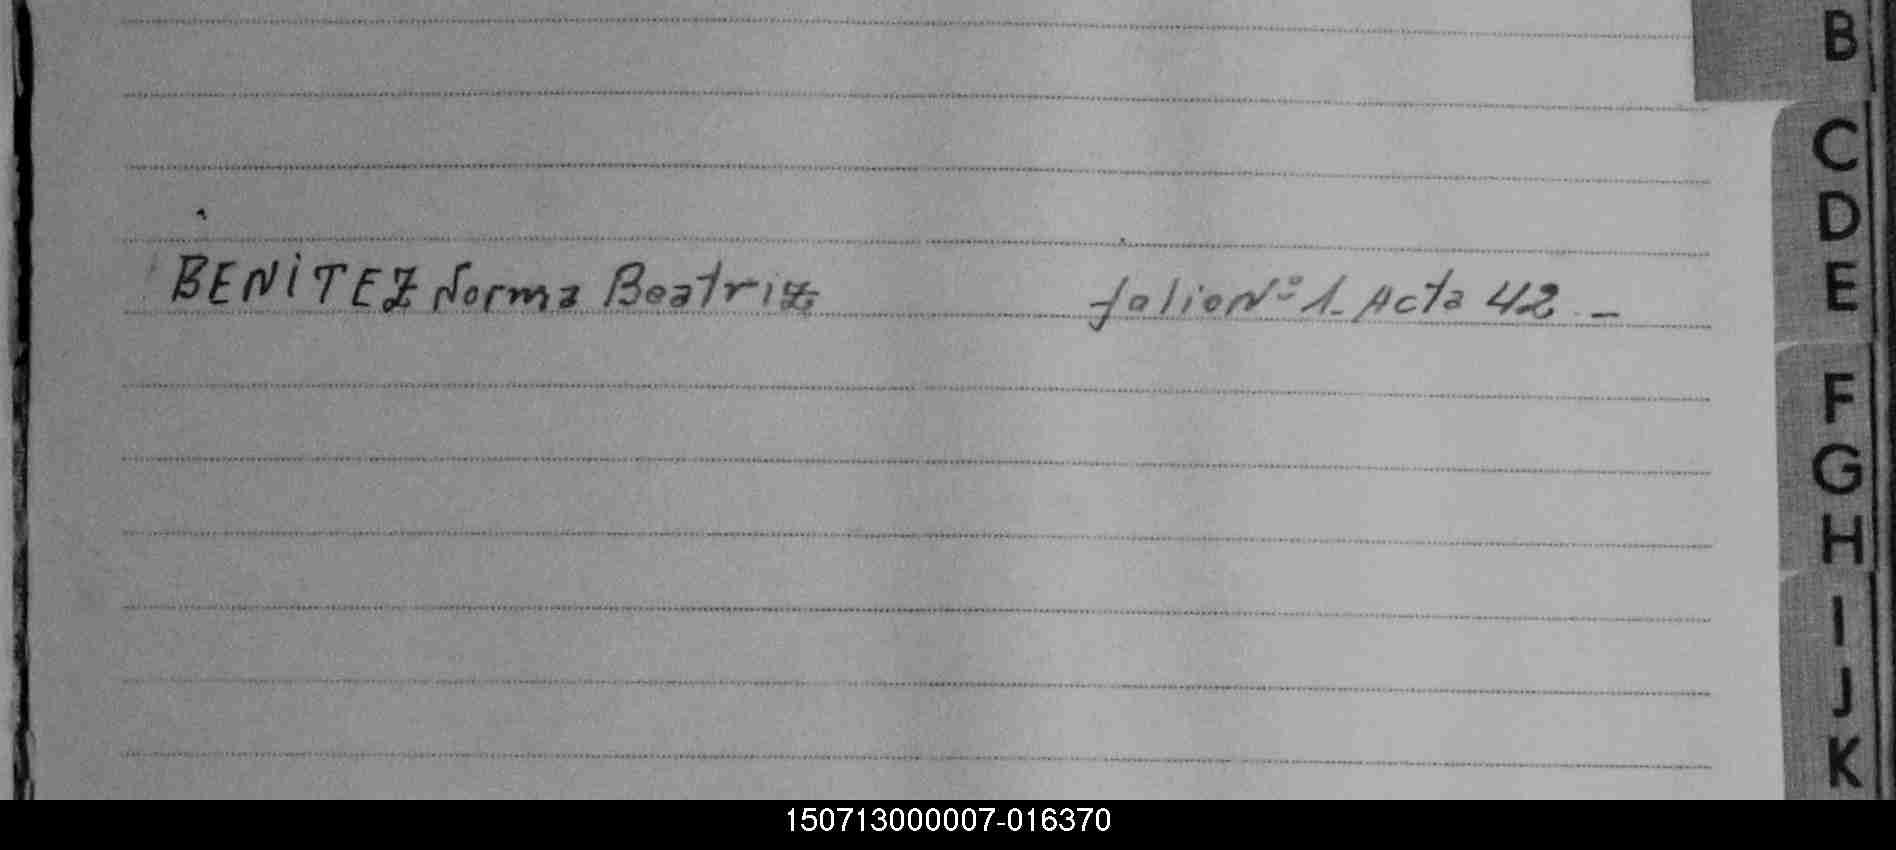 B
C
D
E
BENITEZ Norma Beatriz folio Nº 1. Acta 42 . _
F
G
H
I
J
K
150713000007-016370